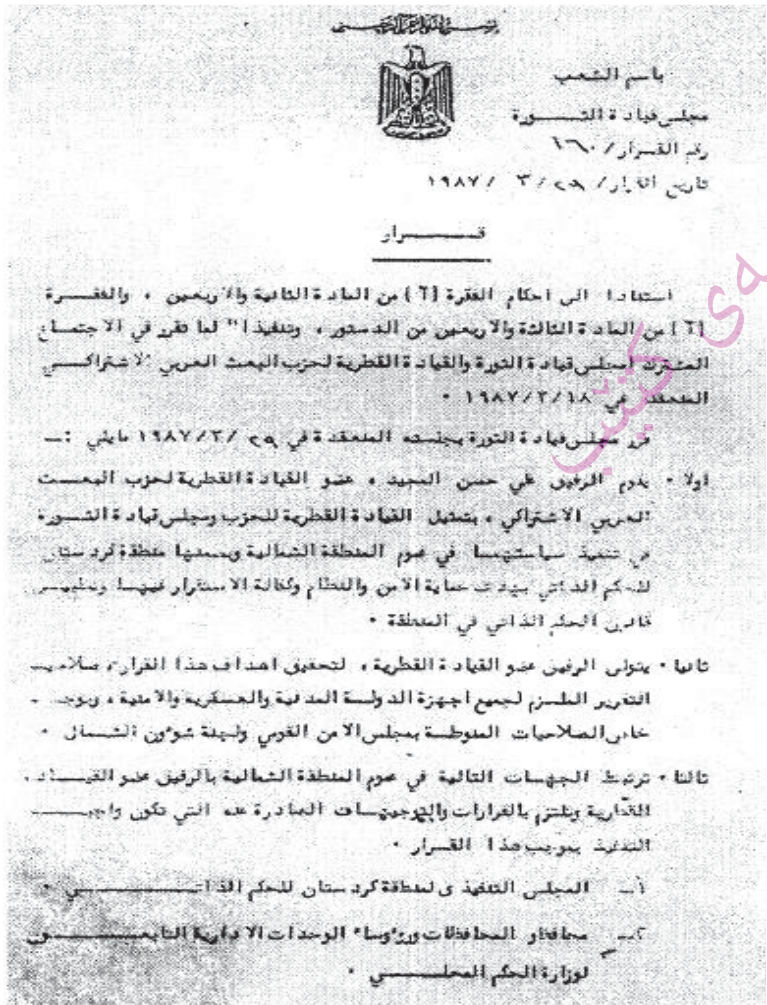 بسم الله الرحمن الرحيم
باسم الشعب
مجلس قيادة الثـــــورة
رقم القـرار/ ١٦٠
تاريخ القرار/ ٢٩/ ٣ /١٩٨٧
قـــــــرار
استنادا الى احكام الفقرة (٦) من المادة الثانية والاربعين ، والفقـــرة
(٦) من المادة الثالثة والاربعين من الدستور ، وتنفيذا" لما تقرر في الاجتمـاع
المشترك لمجلس قيادة الثورة والقيادة القطرية لحزب البعث العربي الاشتراكـــي
المنعقد في ١٩٨٧/٣/١٨ ٠
قرر مجلس قيادة الثورة بجلسته المنعقدة في ٢٩ /١٩٨٧/٣ مايلي :ـ
اولا ٠ يقوم الرفيق علي حسن المجيد ، عضو القيادة القطرية لحزب البعـــث
العربي الاشتراكي ، بتمثيل القيادة القطرية للحزب ومجلس قيادة الثـــورة
في تنفيذ سياستهمـا في عموم المنطقة الشمالية وبضمنها منطقة كردستان
للحكم الذاتي بهدف حماية الامن والنظام وكفالة الاستقرار فيهـا وتطبيـــق
قانون الحكم الذاتي في المنطقة ٠
ثانيا ٠ يتولى الرفيق عضو القيادة القطرية ، لتحقيق اهداف هذا القرار، صلاحيـة
التقرير الملـزم لجميع اجهزة الدولـة المدنية والعسكرية والامنية ، وبوجـه
خاص الصلاحيات المنوطـة بمجلس الامن القومي ولجنة شؤون الشـمـال ٠
ثالثا ٠ ترتبط الجهـات التالية في عموم المنطقة الشمالية بالرفيق عضو القيـــادة
القطرية وتلتزم بالقرارات والتوجيهـات الصادرة عنه التي تكون واجبـــة
التنفيذ بموجب هذا القـرار ٠
١ــ المجلس التنفيذي لمنطقة كردستان للحكم الذاتــــــــي ٠
٢ــ محافظو المحافظات ورؤوساء الوحدات الادارية التابعـــــون
لوزارة الحكم المحلـــــي ٠